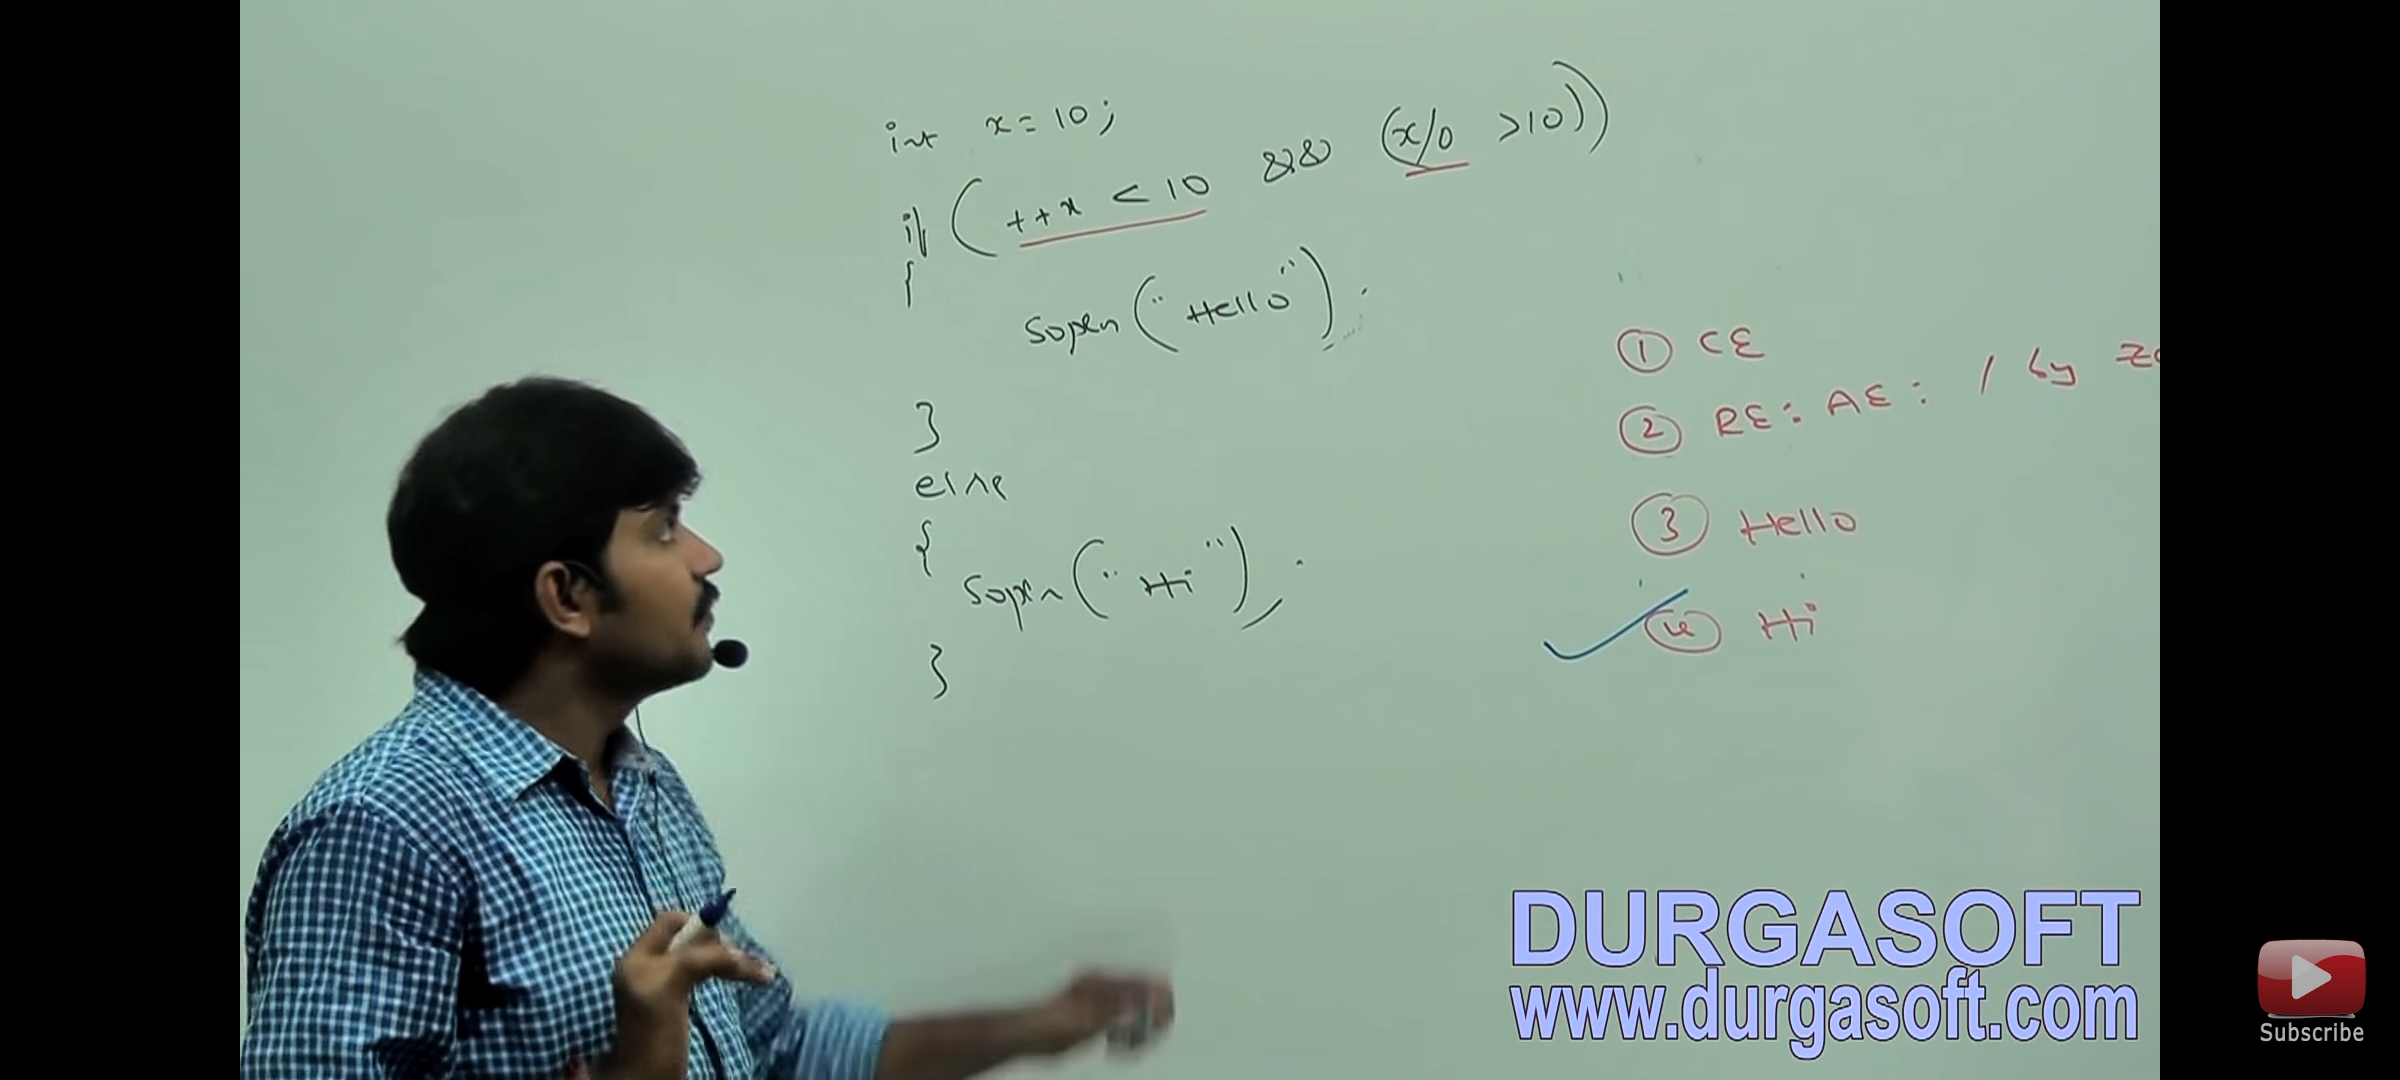 int x = 10;
if ( ++x < 10 && (x/0 > 10))
{
sopln("Hello");
}
else
{
sopln("Hi");
}
① CE
② RE: AE: / by
③ Hello
④ Hi
DURGASOFT
www.durgasoft.com
Subscribe